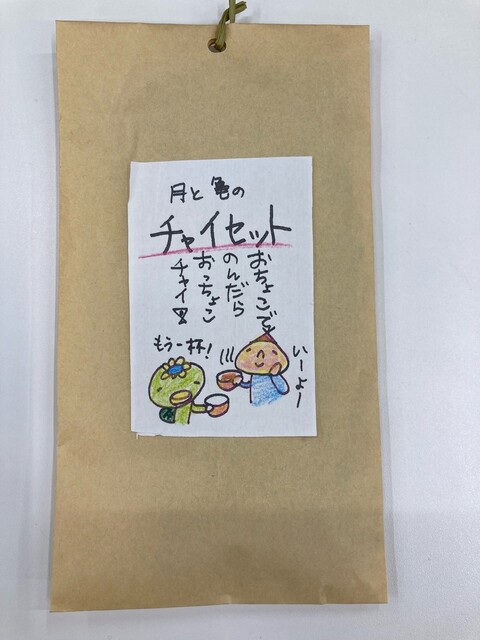 月と亀の
チャイセット
おちょこで
のんだら
おっちょこ
チャイ
もう一杯!
いーよー